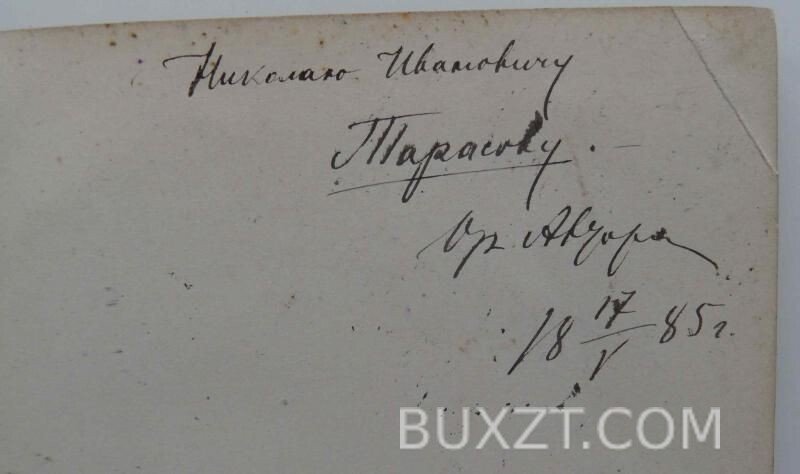 Николаю Ивановичу
Тарасову. –
От Автора
18 17/V 85 г.
BUXZT.COM